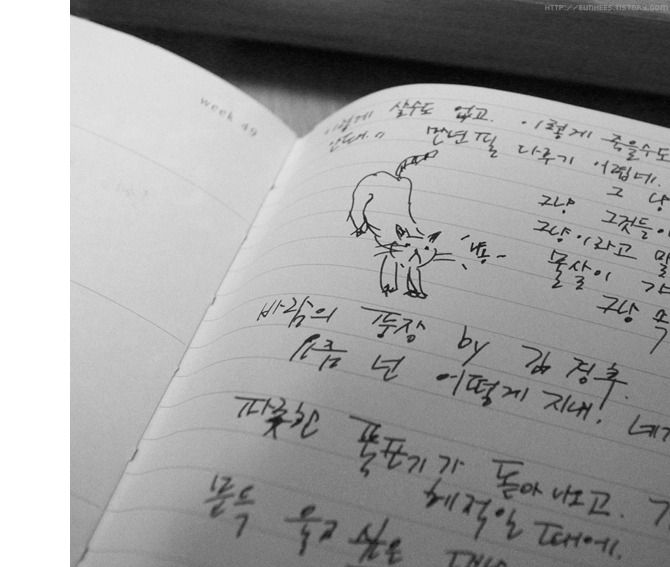 HTTP://EUNHEES.TISTORY.COM
week 49
이렇게 살수도 없고. 이렇게 죽을수도
안돼.
만년필 다루기 어렵네.
그냥
그냥 그것들이
그냥이라고 말
물살이
그냥
냐옹~
바람의 등장 by 김정후.
요즘 넌 어떻게 지내.
파릇한 풀포기가 돋아나오고.
헤적일 때에.
문득 울고 싶은